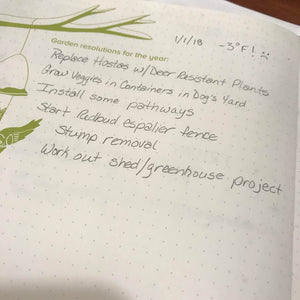 1/1/18 -3°F! :(
Garden resolutions for the year:
Replace Hostas w/Deer Resistant Plants
Grow Veggies in Containers in Dog's Yard
Install some pathways
Start Redbud espalier fence
Stump removal
Work out shed/greenhouse project